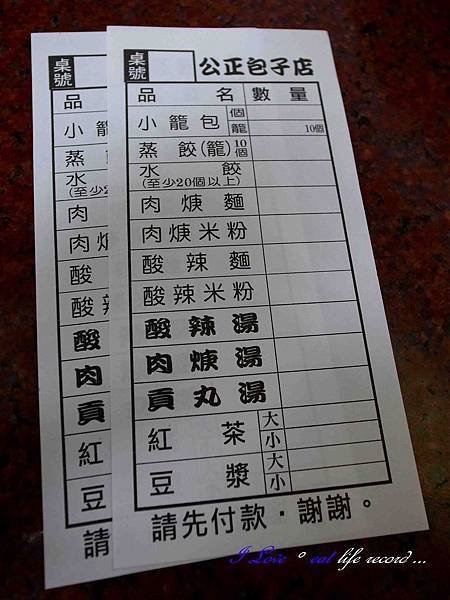 桌號 公正包子店
品名 數量
小籠包 個
籠 10個
蒸餃(籠) 10個
水餃
(至少20個以上)
肉焿麵
肉焿米粉
酸辣麵
酸辣米粉
酸辣湯
肉焿湯
貢丸湯
紅茶 大
小
豆漿 大
小
請先付款．謝謝。
桌號
品
小籠
蒸餃
水
(至少2
肉
肉焿
酸
酸辣
酸
肉
貢
紅
豆
請
I Love ° eat life record ...